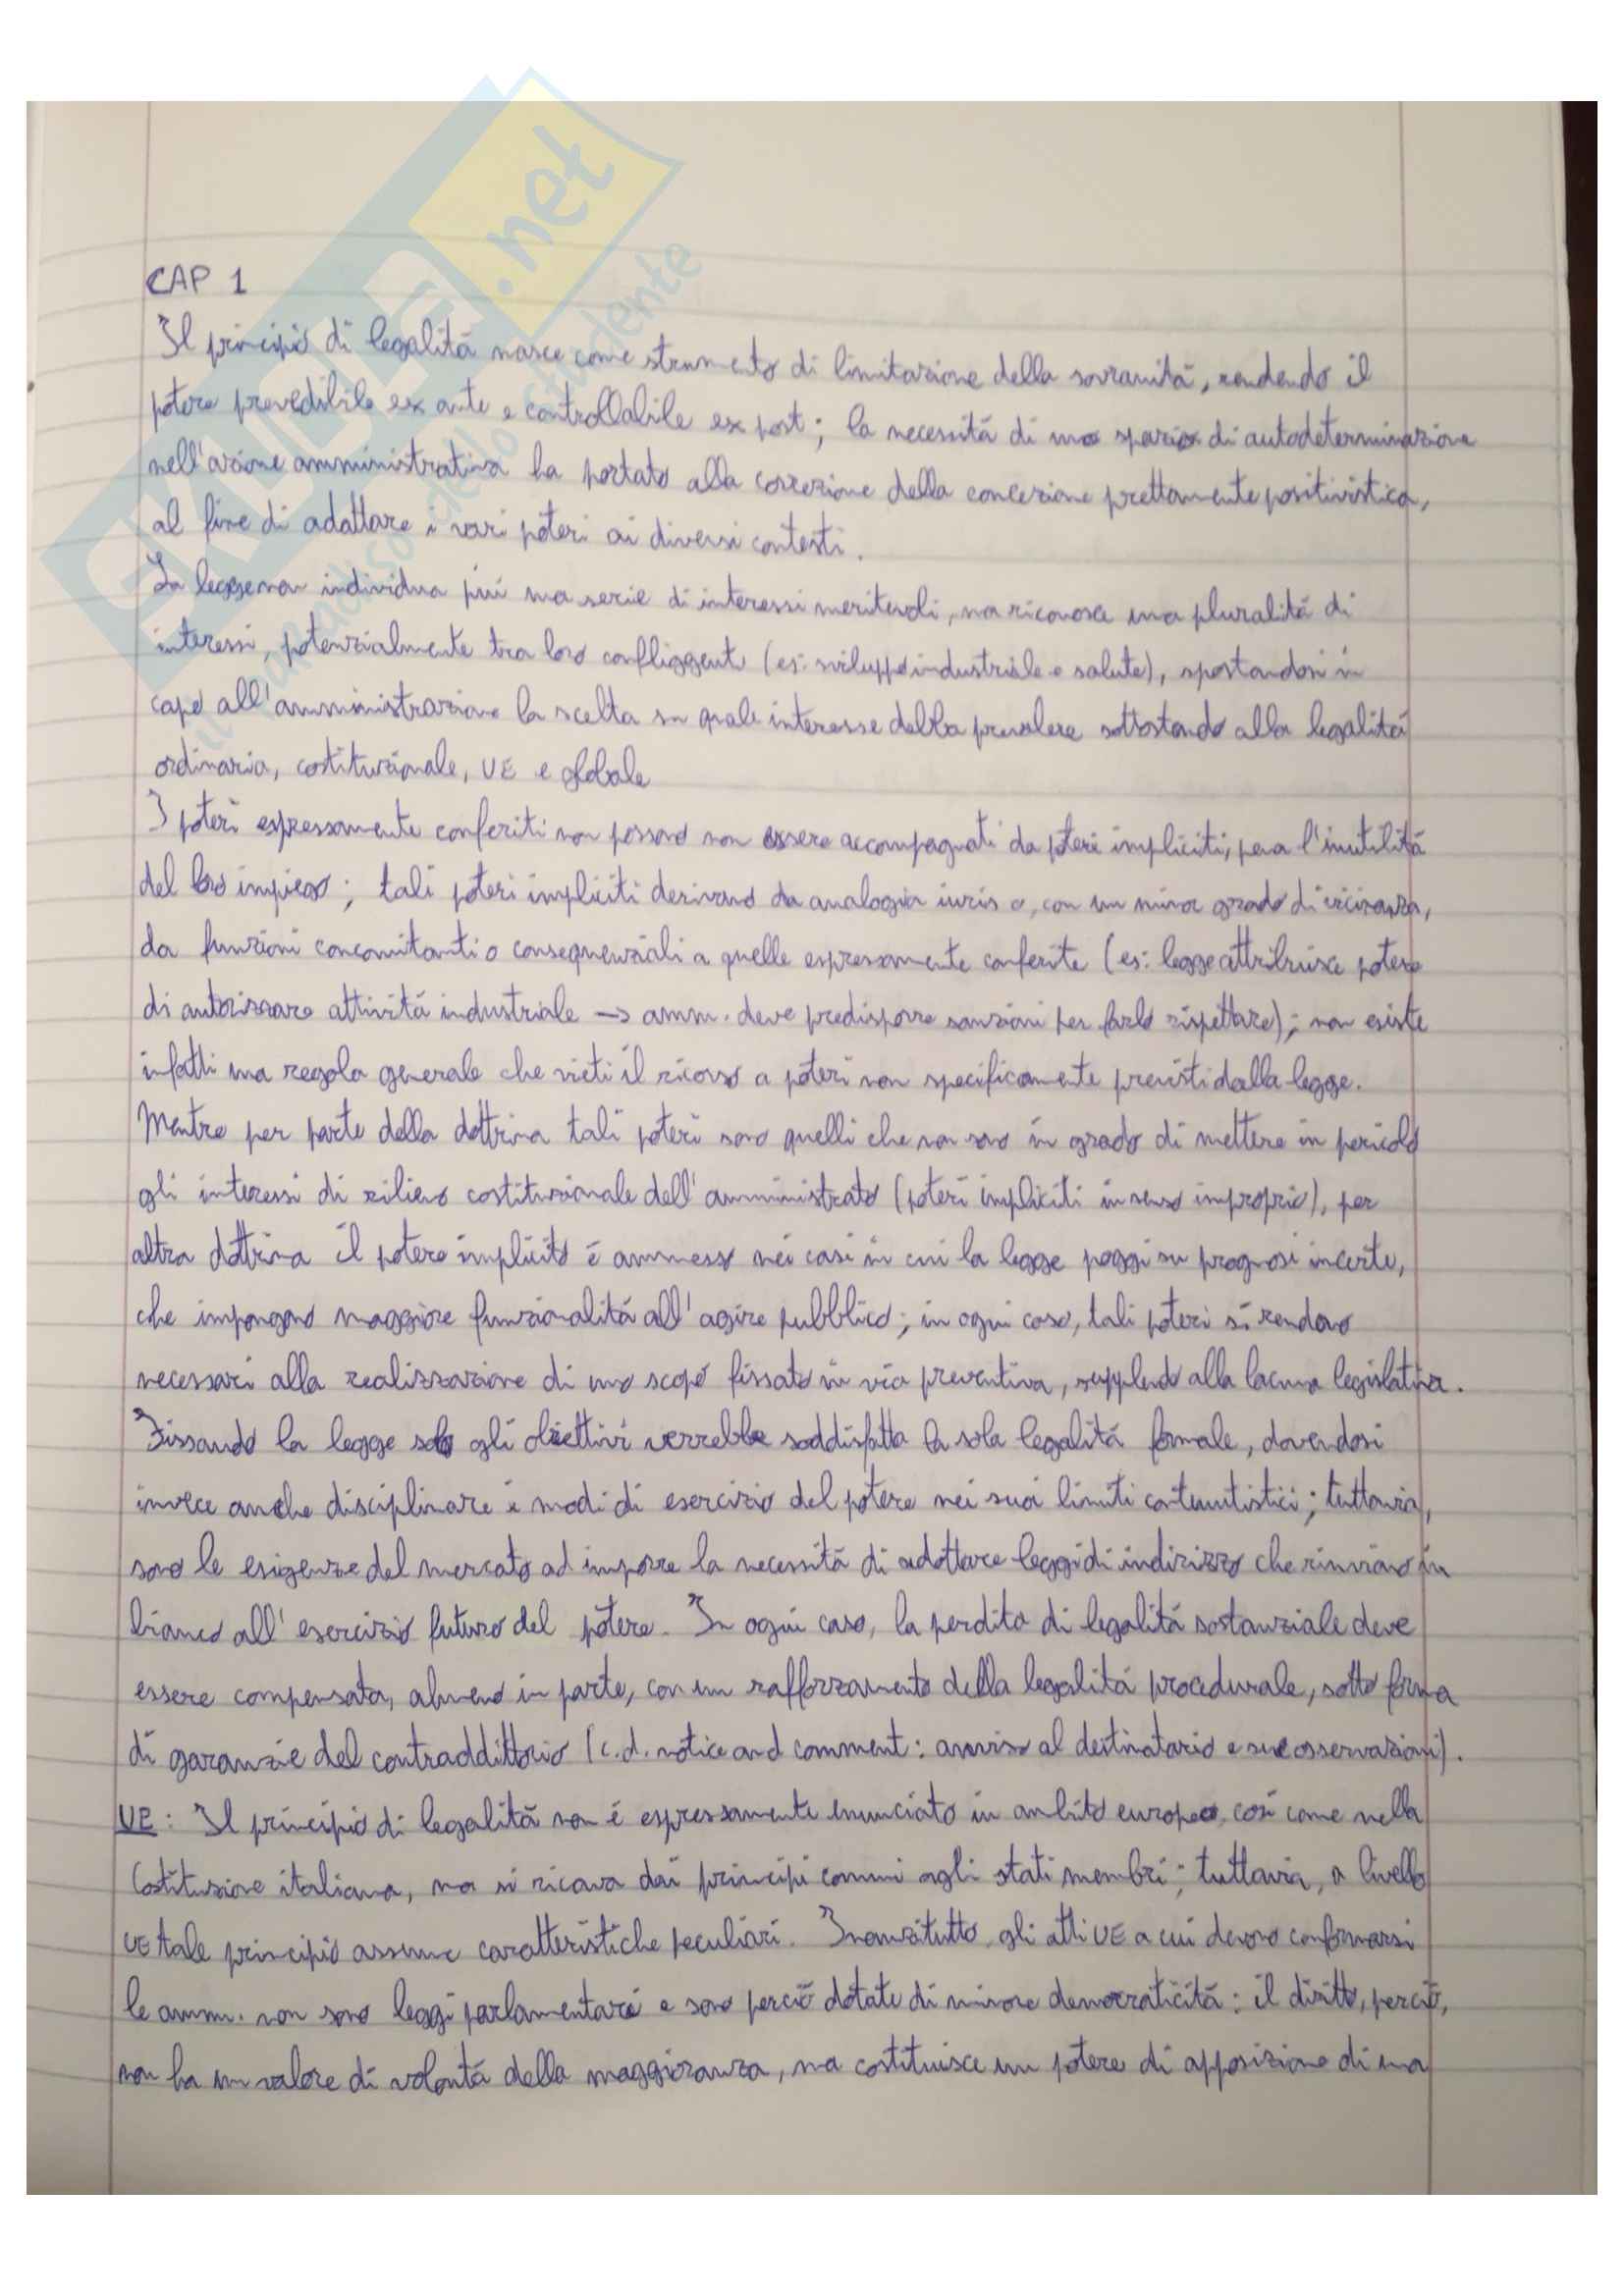 CAP 1
Il principio di legalità nasce come strumento di limitazione della sovranità, rendendo il
potere prevedibile ex ante e controllabile ex post; la necessità di uno spazio di autodeterminazione
nell'azione amministrativa ha portato alla correzione della concezione prettamente positivistica,
al fine di adattare i vari poteri ai diversi contesti.
La legge non individua più una serie di interessi meritevoli, ma riconosce una pluralità di
interessi, potenzialmente tra loro confliggenti (es: sviluppo industriale e salute), spostandosi in
capo all'amministrazione la scelta su quale interesse debba prevalere sottostando alla legalità
ordinaria, costituzionale, UE e globale
I poteri espressamente conferiti non possono non essere accompagnati da poteri impliciti, pena l'inutilità
del loro impiego; tali poteri impliciti derivano da analogia iuris o, con un minor grado di vicinanza,
da funzioni concomitanti o consequenziali a quelle espressamente conferite (es: legge attribuisce potere
di autorizzare attività industriale -> amm. deve predisporre sanzioni per farlo rispettare); non esiste
infatti una regola generale che vieti il ricorso a poteri non specificamente previsti dalla legge.
Mentre per parte della dottrina tali poteri sono quelli che non sono in grado di mettere in pericolo
gli interessi di rilievo costituzionale dell'amministrato (poteri impliciti in senso improprio), per
altra dottrina il potere implicito é ammesso nei casi in cui la legge poggi su prognosi incerte,
che impongono maggiore funzionalità all'agire pubblico; in ogni caso, tali poteri si rendono
necessari alla realizzazione di uno scopo fissato in via preventiva, supplendo alla lacuna legislativa.
Fissando la legge solo gli obiettivi verrebbe soddisfatta la sola legalità formale, dovendosi
invece anche disciplinare i modi di esercizio del potere nei suoi limiti contenutistici; tuttavia,
sono le esigenze del mercato ad imporre la necessità di adottare leggi di indirizzo che rinviano in
bianco all'esercizio futuro del potere. In ogni caso, la perdita di legalità sostanziale deve
essere compensata, almeno in parte, con un rafforzamento della legalità procedurale, sotto forma
di garanzie del contraddittorio (c.d. notice and comment: avviso al destinatario e sue osservazioni).
UE: Il principio di legalità non é espressamente enunciato in ambito europeo, così come nella
Costituzione italiana, ma si ricava dai principi comuni agli stati membri; tuttavia, a livello
UE tale principio assume caratteristiche peculiari. Innanzitutto, gli atti UE a cui devono conformarsi
le amm. non sono leggi parlamentari e sono perciò dotate di minore democraticità: il diritto, perciò,
non ha un valore di volontà della maggioranza, ma costituisce un potere di apposizione di una
.net